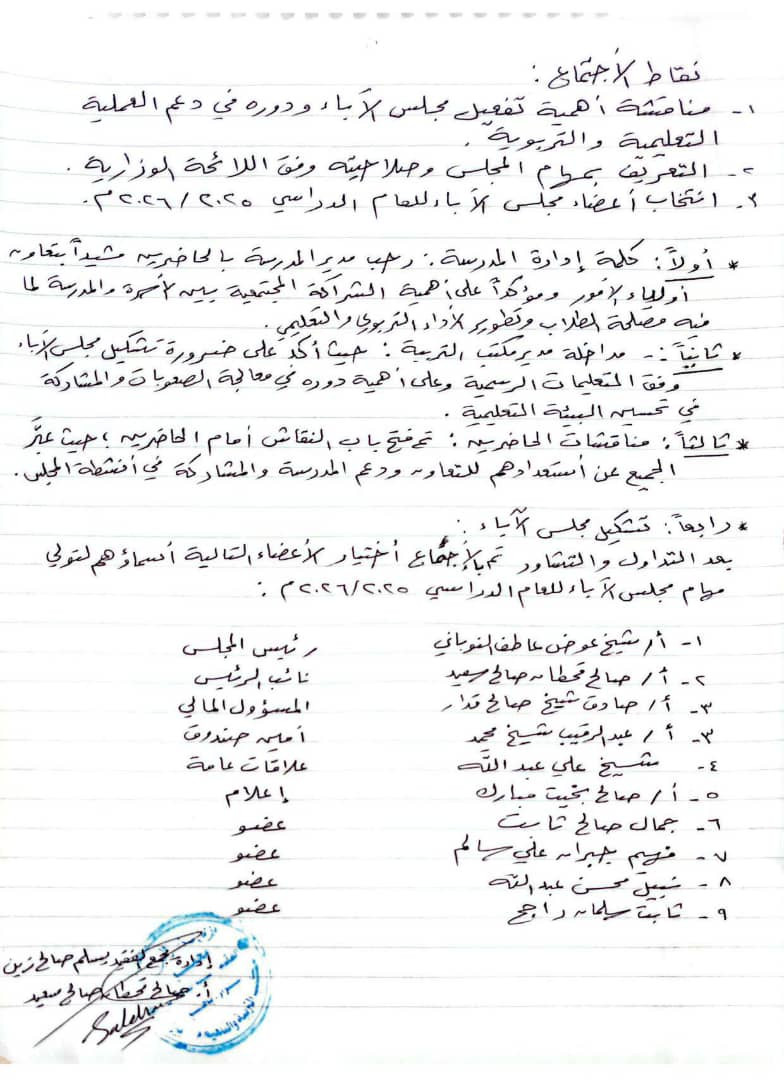 نقاط الأجتماع :
١- مناقشة أهمية تفعيل مجلس الآباء ودوره في دعم العملية
التعليمية والتربوية .
٢- التعريف بمهام المجلس وصلاحيته وفق اللائحة الوزارية .
٣- انتخاب أعضاء مجلس الآباء للعام الدراسي ٢٠٢٥ / ٢٠٢٦م.
* أولاً : كلمة إدارة المدرسة : رحب مدير المدرسة بالحاضرين مشيداً بتعاون
أولياء الأمور ومؤكداً على أهمية الشراكة المجتمعية بين الأسرة والمدرسة لما
فيه مصلحة الطلاب وتطوير الأداء التربوي والتعليمي .
* ثانياً :- مداخلة مدير مكتب التربية : حيث أكد على ضرورة تشكيل مجلس الآباء
وفق التعليمات الرسمية وعلى أهمية دوره في معالجة الصعوبات والمشاركة
في تحسين البيئة التعليمية .
* ثالثاً : مناقشات الحاضرين : تم فتح باب النقاش أمام الحاضرين ؛ حيث عبَّر
الجميع عن أستعدادهم للتعاون ودعم المدرسة والمشاركة في أنشطة المجلس .
* رابعاً : تشكيل مجلس الآباء :
بعد التداول والتشاور تم بالإجماع أختيار الأعضاء التالية أسماؤهم لتولي
مهام مجلس الآباء للعام الدراسي ٢٠٢٥/٢٠٢٦م :
١- أ/ شيخ عوض عاطف رئيس المجلس
٢- أ/ صالح قحطان صالح سعيد نائب الرئيس
٣- أ/ صادق شيخ صالح قدار المسؤول المالي
٣- أ/ عبدالرقيب شيخ محمد أمين صندوق
٤- شيخ علي عبدالله علاقات عامة
٥- أ/ صالح بخيت مبارك إعلام
٦- جمال صالح ثابت عضو
٧- فهيم جبران علي سالم عضو
٨- نبيل محسن عبدالله عضو
٩- ثابت سلمان راجح عضو
إدارة مجمع الفقيد يسلم صالح زين
أ. صالح قحطان صالح سعيد